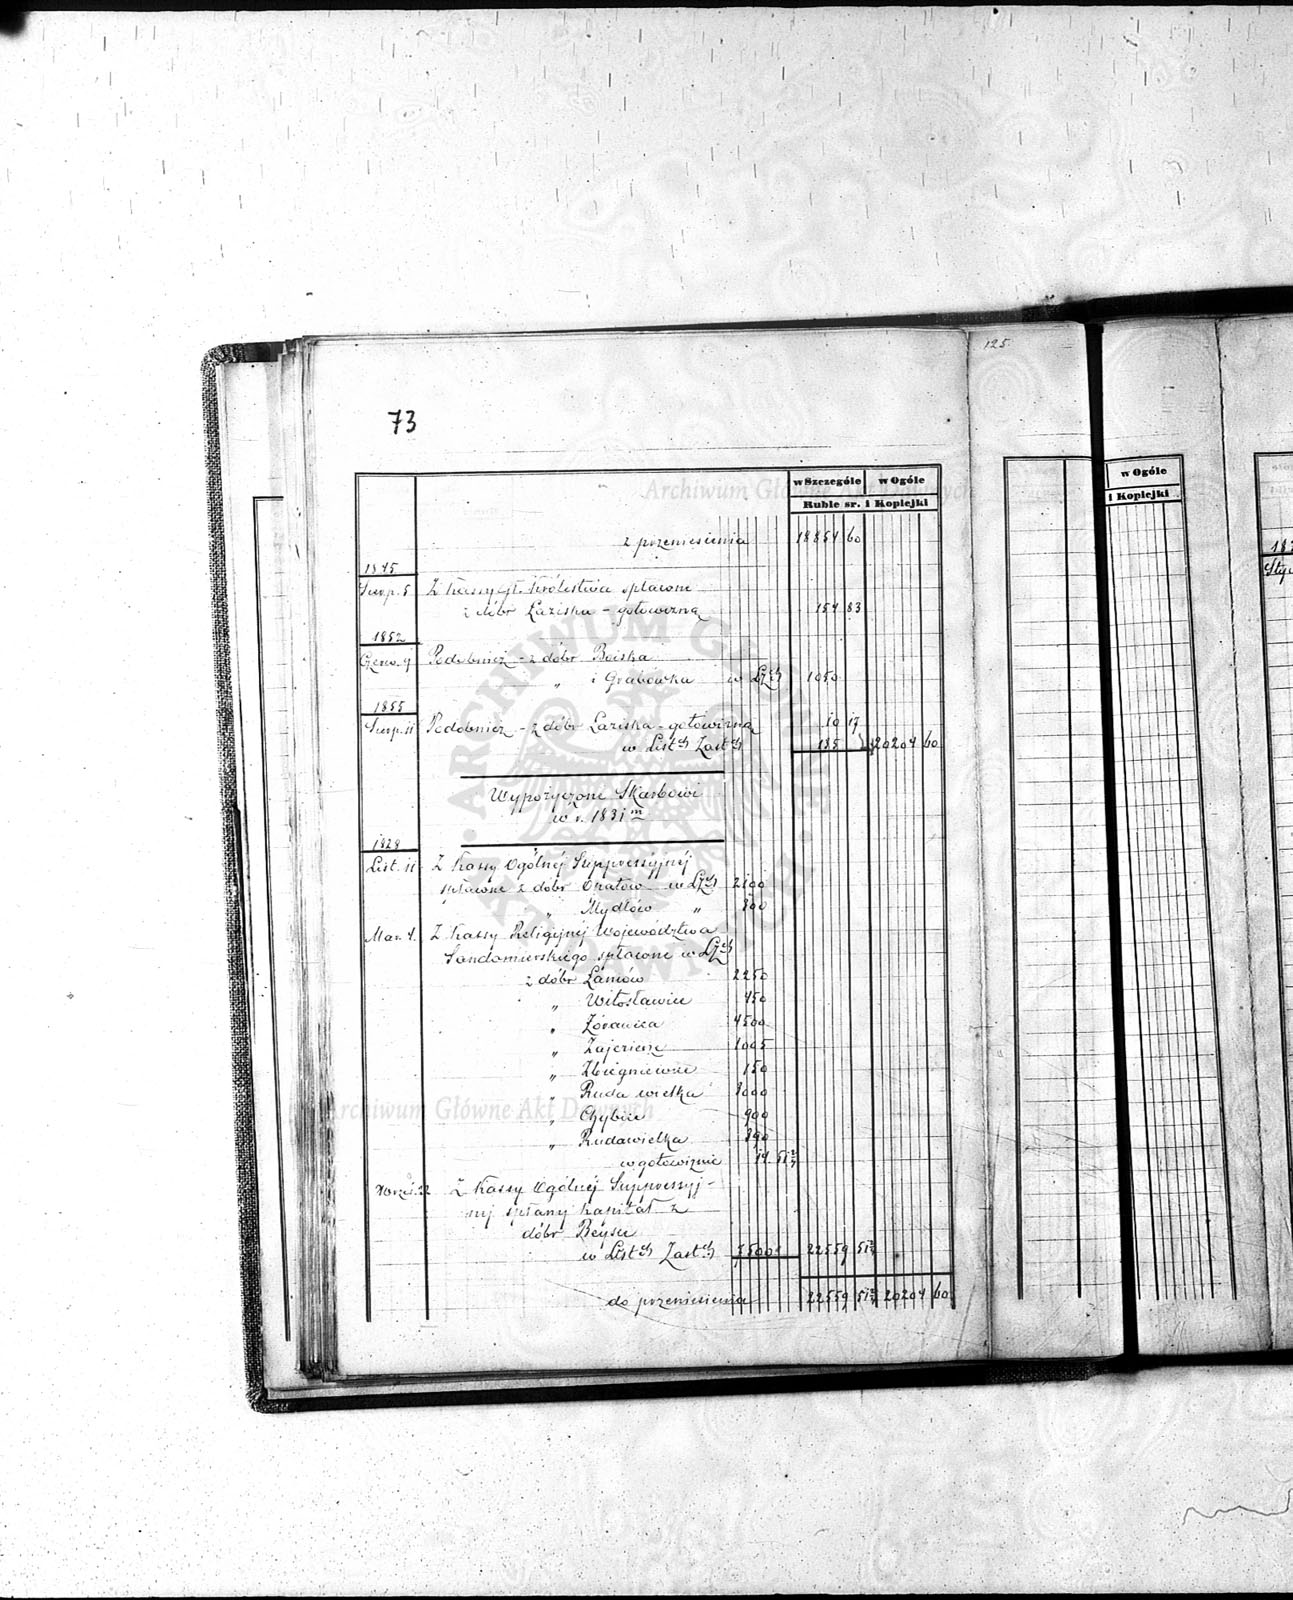 125
73
w Szczególe w Ogóle
Ruble sr. i Kopiejki
z przeniesienia 18854 60
1845
Sierp. 5 Z Kassy Gł. Królestwa spłacone
z dóbr Łaziska - gotowizną 154 83
1852
Czerw. 9 Podobnież - z dóbr Boiska
„ i Grabówka w Lzch 1050
1855
Sierp. 11 Podobnież - z dóbr Łaziska - gotowizną 10 17
w Listch Zastch 135 20204 60
Wypożyczone Skarbowi
w r. 1831m
1828
List. 11 Z Kassy Ogólnéj Suppressyjnéj
spłacone z dóbr Opatów w Lzch 2100
„ Mydłów „ 300
Mar. 4. Z Kassy Religijnéj Województwa
Sandomierskiego spłacone w Lzch
z dóbr Łaniów 2250
„ Witosławice 450
„ Żórawica 4500
„ Zajezierze 1005
„ Zbiegniewice 150
„ Ruda wielka 3000
„ Chybice 900
„ Rudawielka 390
w gotowiznie 14 51
Wrześ. 22 Z Kassy Ogólnéj Suppressyj-
néj spłany kapitał z
dóbr Béysce
w Listch Zastch 7500 22559 51
do przeniesienia 22559 51 20204 60
w Ogóle
i Kopiejki
Archiwum Główne Akt Dawnych
Archiwum Główne Akt Dawnych
ARCHIWUM GŁÓWNE AKT DAWNYCH